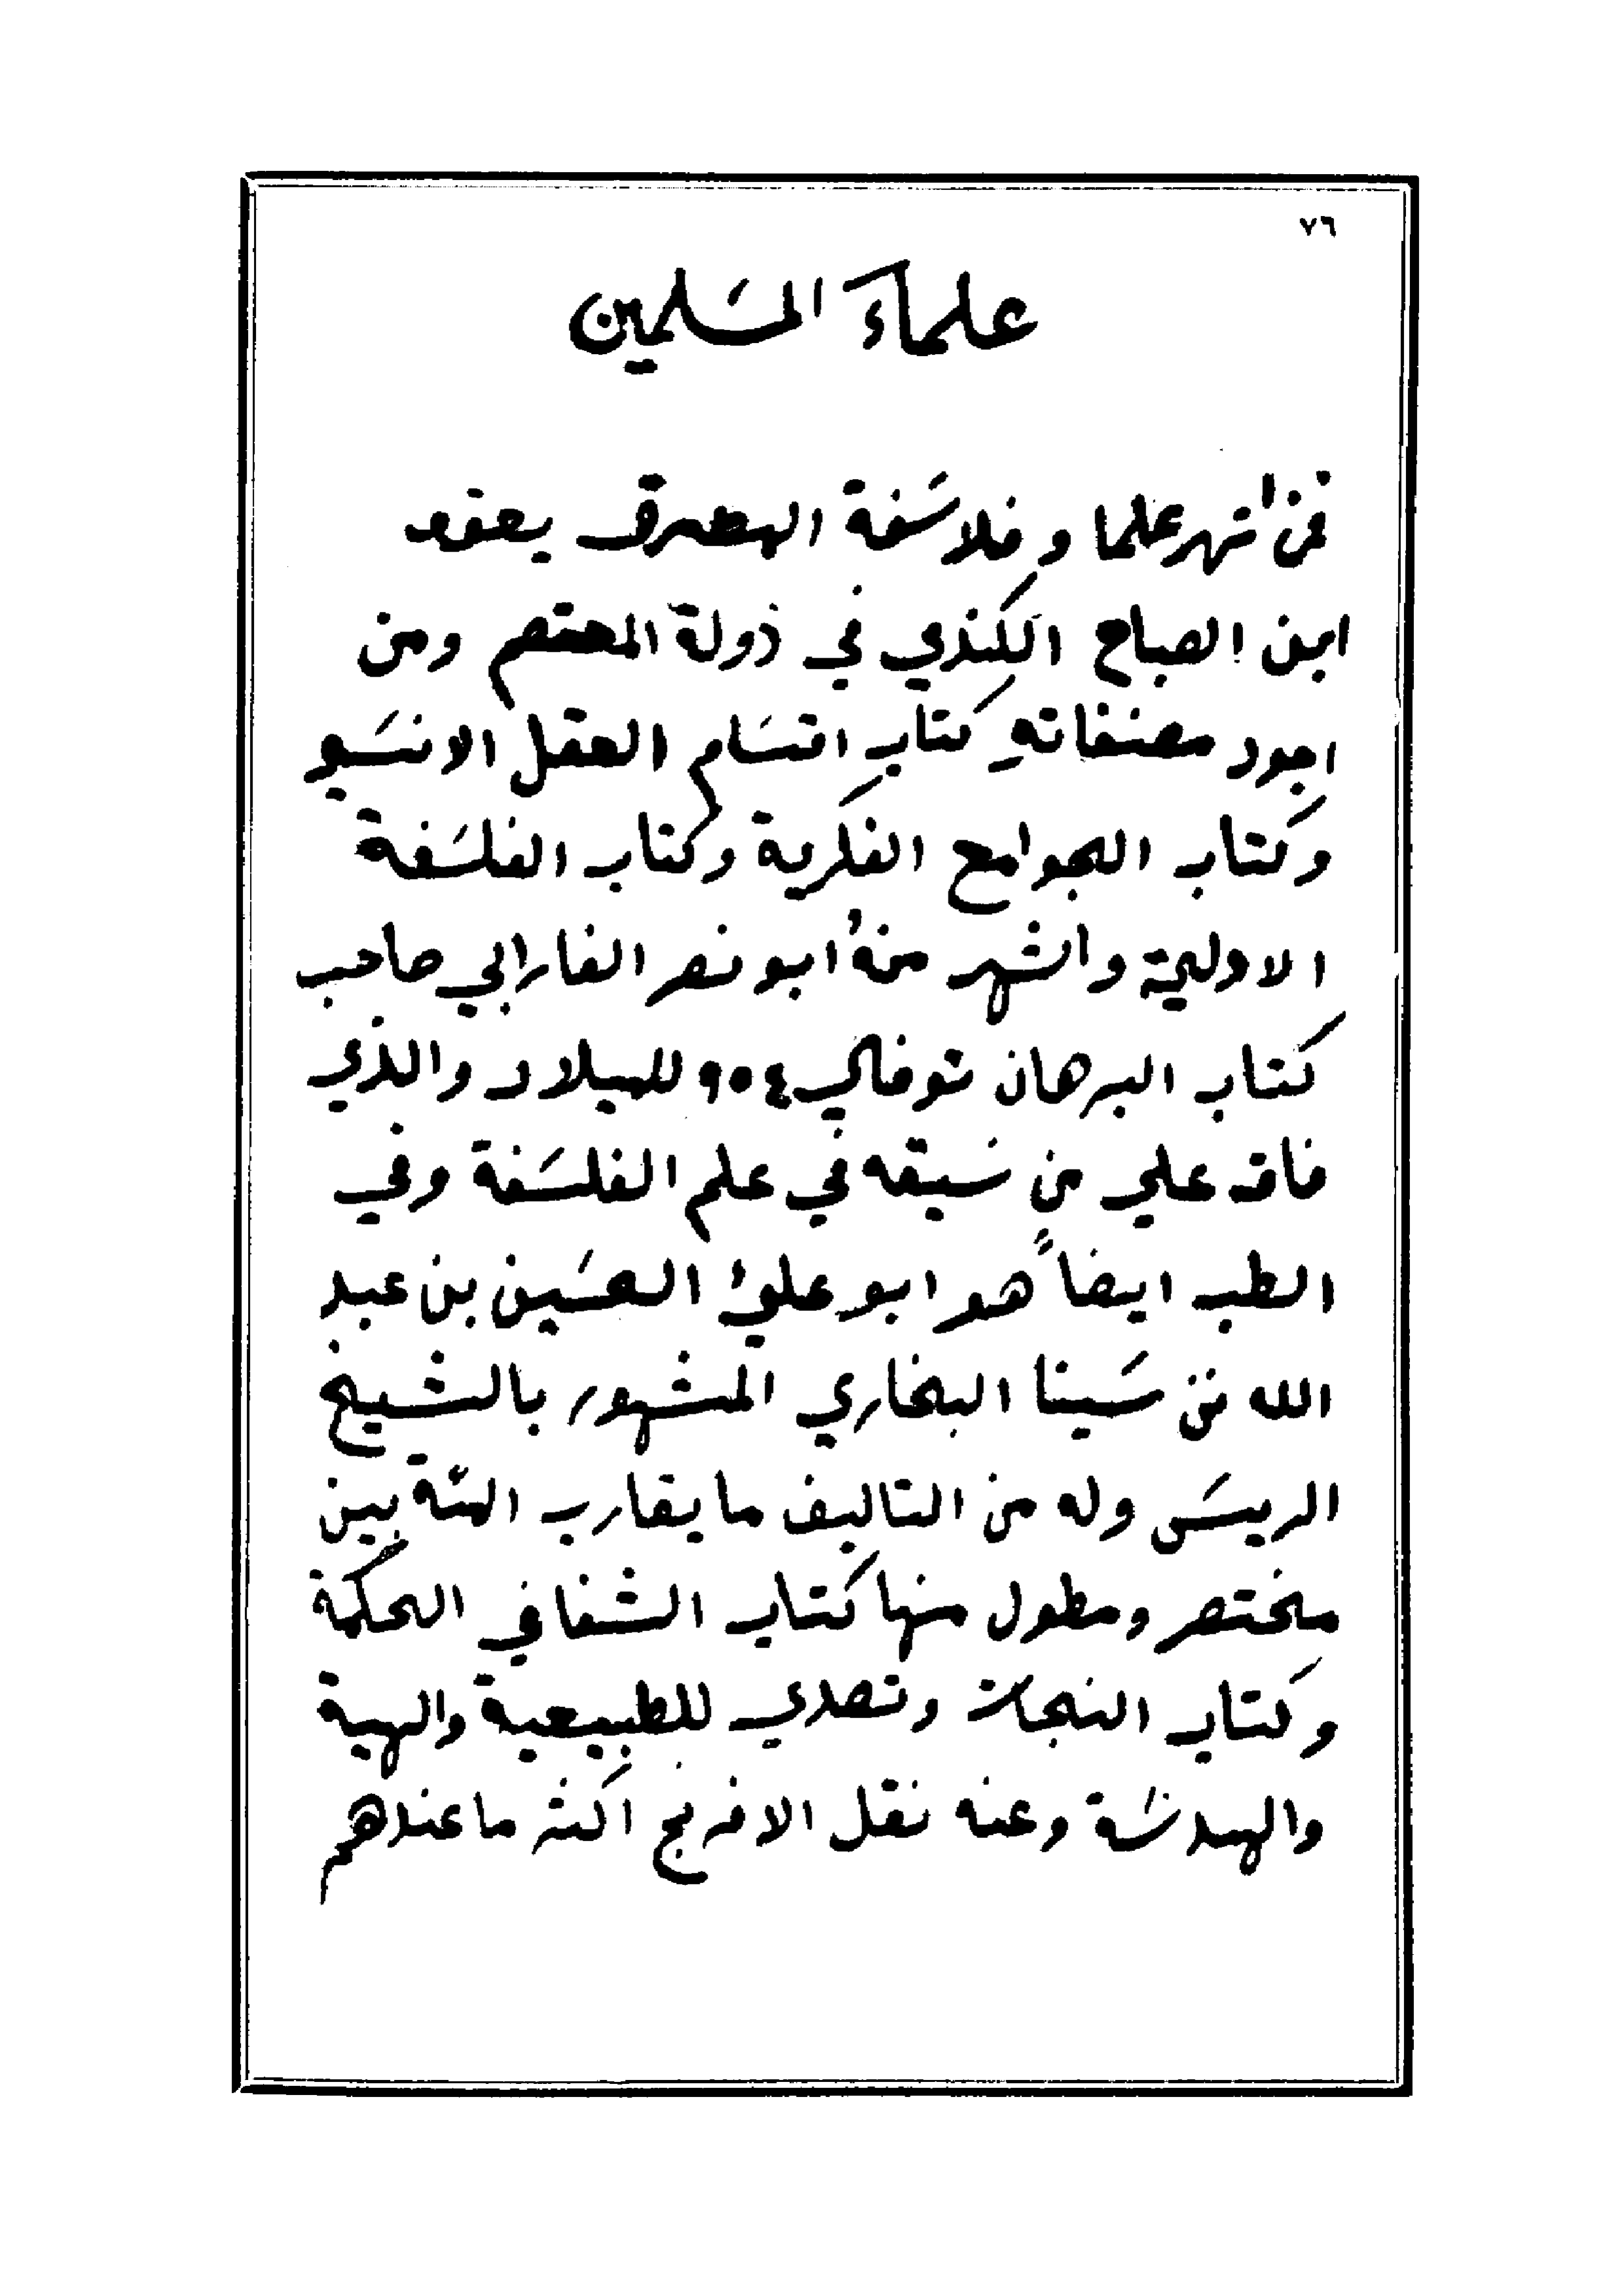 ٧٦
علماءَ المسَلمين
فمن اشهر علما و فلاسَفة المشرق يعقوب
ابن الصباح الكندي في دولة المعتصم ومن
اجود مصنفاتهِ كتاب اقسَام العقل الانسَي
وكتاب الجوامع الفكرية وكتاب الفلسَفة
الاولية واشهر منهُ ابو نصر الفارابي صاحب
كتاب البرهان توفي ٩٥٤ للميلاد والذي
فاق علي من سَبقه في علم الفلسَفة وفي
الطب ايضاً هو ابو علي الحسَين بن عبد
الله بن سَينا البخاري المشهور بالشيخ
الريسَ وله من التاليف ما يقارب المئة بين
مختصر ومطول منها كتاب الشفا في الحكمة
وكتاب النجاة وتصدي للطبيعية والهية
والهندسَة وعنه نقل الافرنج اكثر ما عندهم